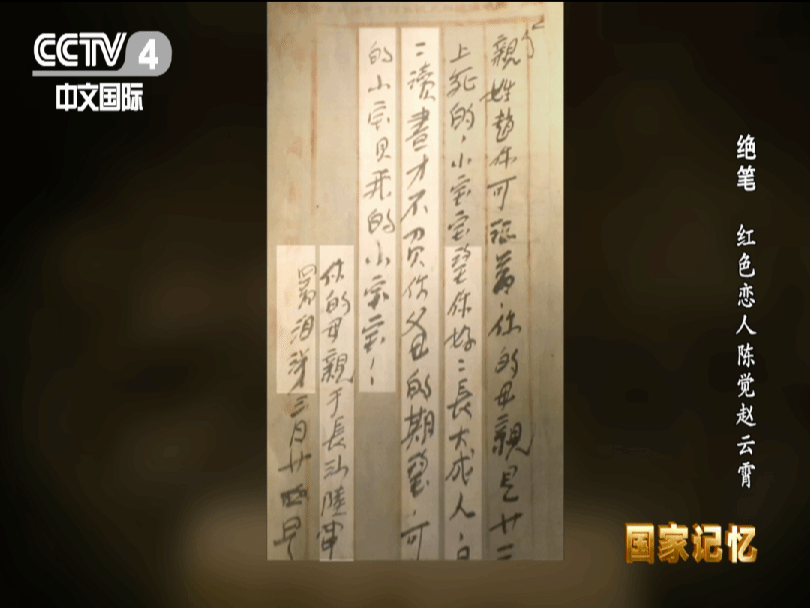 CCTV 4
中文国际
親姓趙你可記着,你的母親是廿三
上死的,小宝宝望你好二長大成人,且
二讀書才不負你父母的期望,可
的小宝贝我的小宝宝!
你的母親于長沙陸軍
署泪涕三月廿四早
绝笔 红色恋人陈觉赵云霄
国家记忆